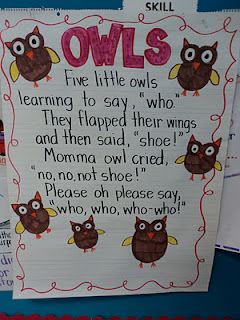 SKILL
OWLS
Five little owls
learning to say, "who."
They flapped their wings
and then said, "shoe!"
Momma owl cried,
"no, no, not shoe!"
Please oh please say,
"who, who, who-who!"